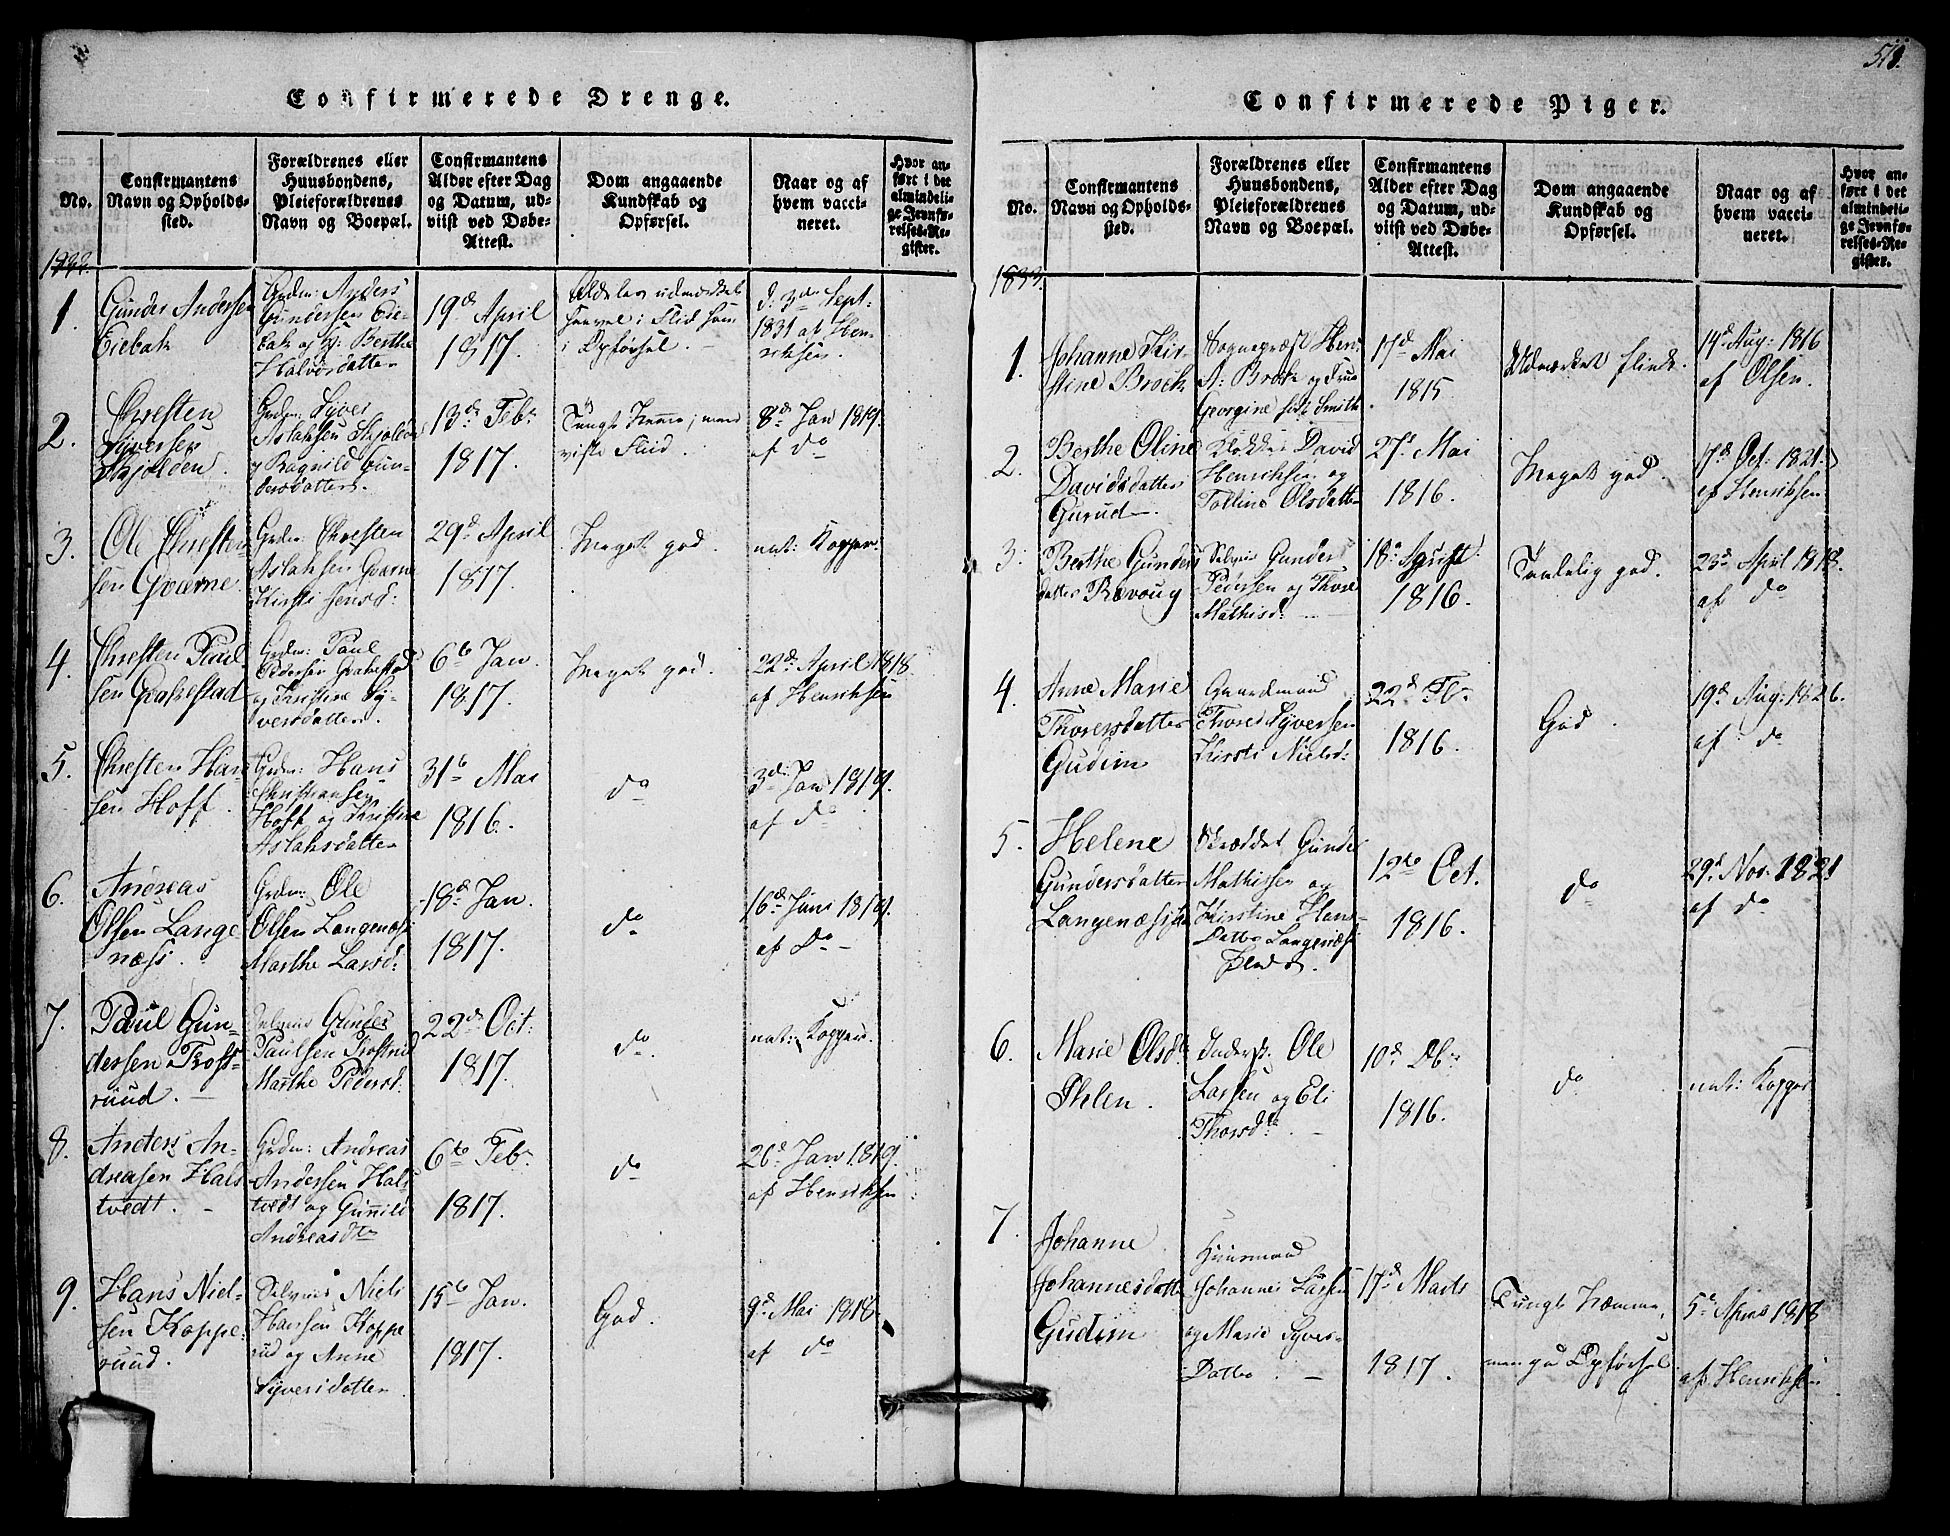 Confirmerede Drenge.
No.
Confirmantens
Navn og Opholds-
sted.
Forældrenes eller
Huusbondens,
Pleieforældrenes
Navn og Boepæl.
Confirmantens
Alder efter Dag
og Datum, ud-
viist ved Døbe-
Attest.
Dom angaaende
Kundskab og
Opførsel.
Naar og af
hvem vacci-
neret.
Hvor an-
ført i det
almindeli-
ge Jevnfø-
relses-Re-
gister.
1.
Gunder Andersen
Eiebak
Grdm: Anders
Gundersen Eie-
bak og Berthe
Halvorsdatter
19d April
1817.
i Opførsel.
d. 3de Sept.
1831 af Hen-
riksen.
2.
Chresten
Syversen
Skjolden.
Grdm: Syver
Aslaksen Skjolden
og Ragnild Gun-
dersdatter.
13de Febr
1817.
Tungt Nemme; med
viste Fliid.
8d Jan 1819.
af do
3.
Ole Chresten-
sen Gværne
Grdm: Chresten
Aslaksen Gværne
Kirsti Jensd:
29d April
1817.
Meget god.
nat: Kopper.
4.
Chresten Paul-
sen Grakestad
Grdm: Paul
Pedersen Grakestad
og Kirstine Sy-
versdatter.
6te Jan.
1817.
Meget god.
22d April 1818.
af Henriksen
5.
Chresten Han-
sen Hoff.
Grdm: Hans
Christiansen
Hoff og Kirstine
Aslaksdatter
31te Mai
1816.
do
3de Jan 1819.
af do
6.
Andreas
Olsen Lange
næss.
Grdm: Ole
Olsen Langenæs
Marthe Larsd:
18d Jan.
1817.
do
16d Juni 1819.
af Do
7.
Paul Gun-
dersen Trost-
ruud.
Selveier Gunder
Paulsen Trostrud
Marthe Pedersd.
22de Oct:
1817.
do.
nat: Kopper.
8.
Anders An-
dreasen Hals
tvedt.
Grdm: Andreas
Andersen Hals
tvedt og Gunild
Andreasdtr
6te Febr
1817.
do
26d Jan 1819.
af Henriksen
9.
Hans Niel-
sen Koppe-
ruud.
Selveier Niels
Hansen Koppe
rud og Anne
Syversdatter.
15te Jan.
1817.
God.
9d Mai 1818
af do
Confirmerede Piger.
No.
Confirmantens
Navn og Opholds-
sted.
Forældrenes eller
Huusbondens,
Pleieforældrenes
Navn og Boepæl.
Confirmantens
Alder efter Dag
og Datum, ud-
viist ved Døbe-
Attest.
Dom angaaende
Kundskab og
Opførsel.
Naar og af
hvem vacci-
neret.
Hvor an-
ført i det
almindeli-
ge Jevnfø-
relses-Re-
gister.
1833.
1.
Johanne Kir-
stine Brock
Sognepræst Hen:
A: Brock og Frue
Georgine født Smith
17d Mai
1815
Udmærket flink.
14d Aug: 1816
af Olsen.
2.
Berthe Oline
Davidsdatter
Gurud.
Klokker David
Henriksen og
Tolline Olsdatter
27d Mai
1816.
Meget god.
17d Oct. 1821.
af Henriksen
3.
Berthe Gunders
datter Revoug
Selveier Gunder
Pedersen og Thore
Mathisd:
18d August
1816.
Temmelig god.
23d April 1818.
af do
4.
Anne Marie
Thorersdatter
Gudim
Gaardmand
Thorer Syversen
Kirsti Nielsd
22d Fbr
1816.
God.
19d Aug: 1826.
af do
5.
Helene
Gundersdatter
Langenæs
Skrædder Gunder
Mathisen og
Kirstine Hans-
Datter Langenæs
12te Oct.
1816.
do
29d Nov. 1821
af do
6.
Marie Olsdtr
Thelen.
Inderst. Ole
Larsen og Eli
Thorsdtr.
10d Dbr
1816.
do
nat: Kopper
7.
Johanne
Johannesdatter
Gudim
Huusmand
Johannes Larsen
og Marie Syver-
Datter.
17d Marts
1817.
Tungt Nemme,
men god Opførsel.
5d April 1818
af Henriksen.